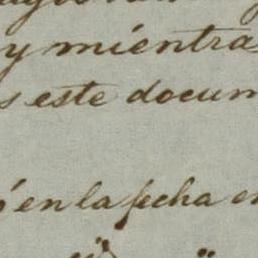 y mientra
s este docum
ó en la fecha en